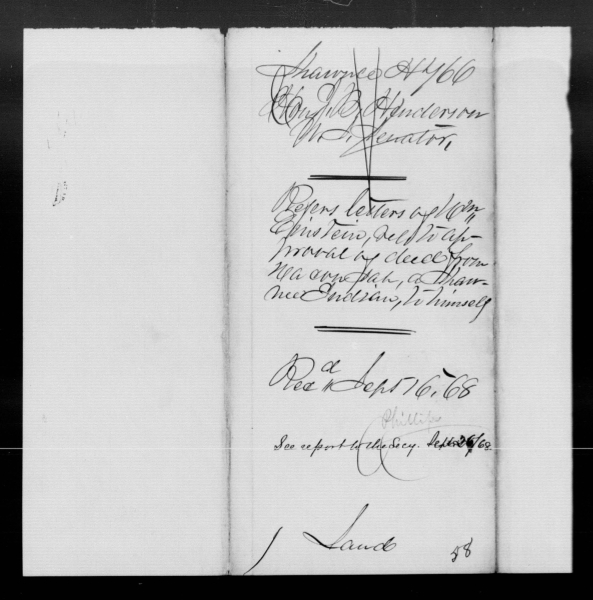 Shawnee H 766
Hon J. B. Henderson
U. S. Senator,
Refers letters of Wm
Einstein, rel. to ap-
proval of deed from
, a Shaw-
nee Indian, to himself
Recd Sept 16, 68
Phillips
See report to the Secy. Sept 26/68
Land
58